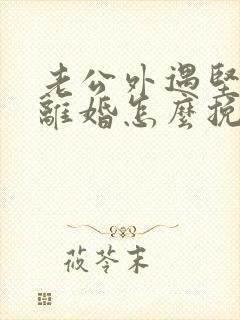 老公外遇堅
離婚怎麼挽
莜苓末